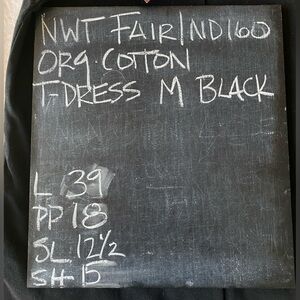 NWT FAIR INDIGO
ORg. COTTON
T-DRESS M BLACK
L 39
PP 18
SL 12 1/2
SH 15